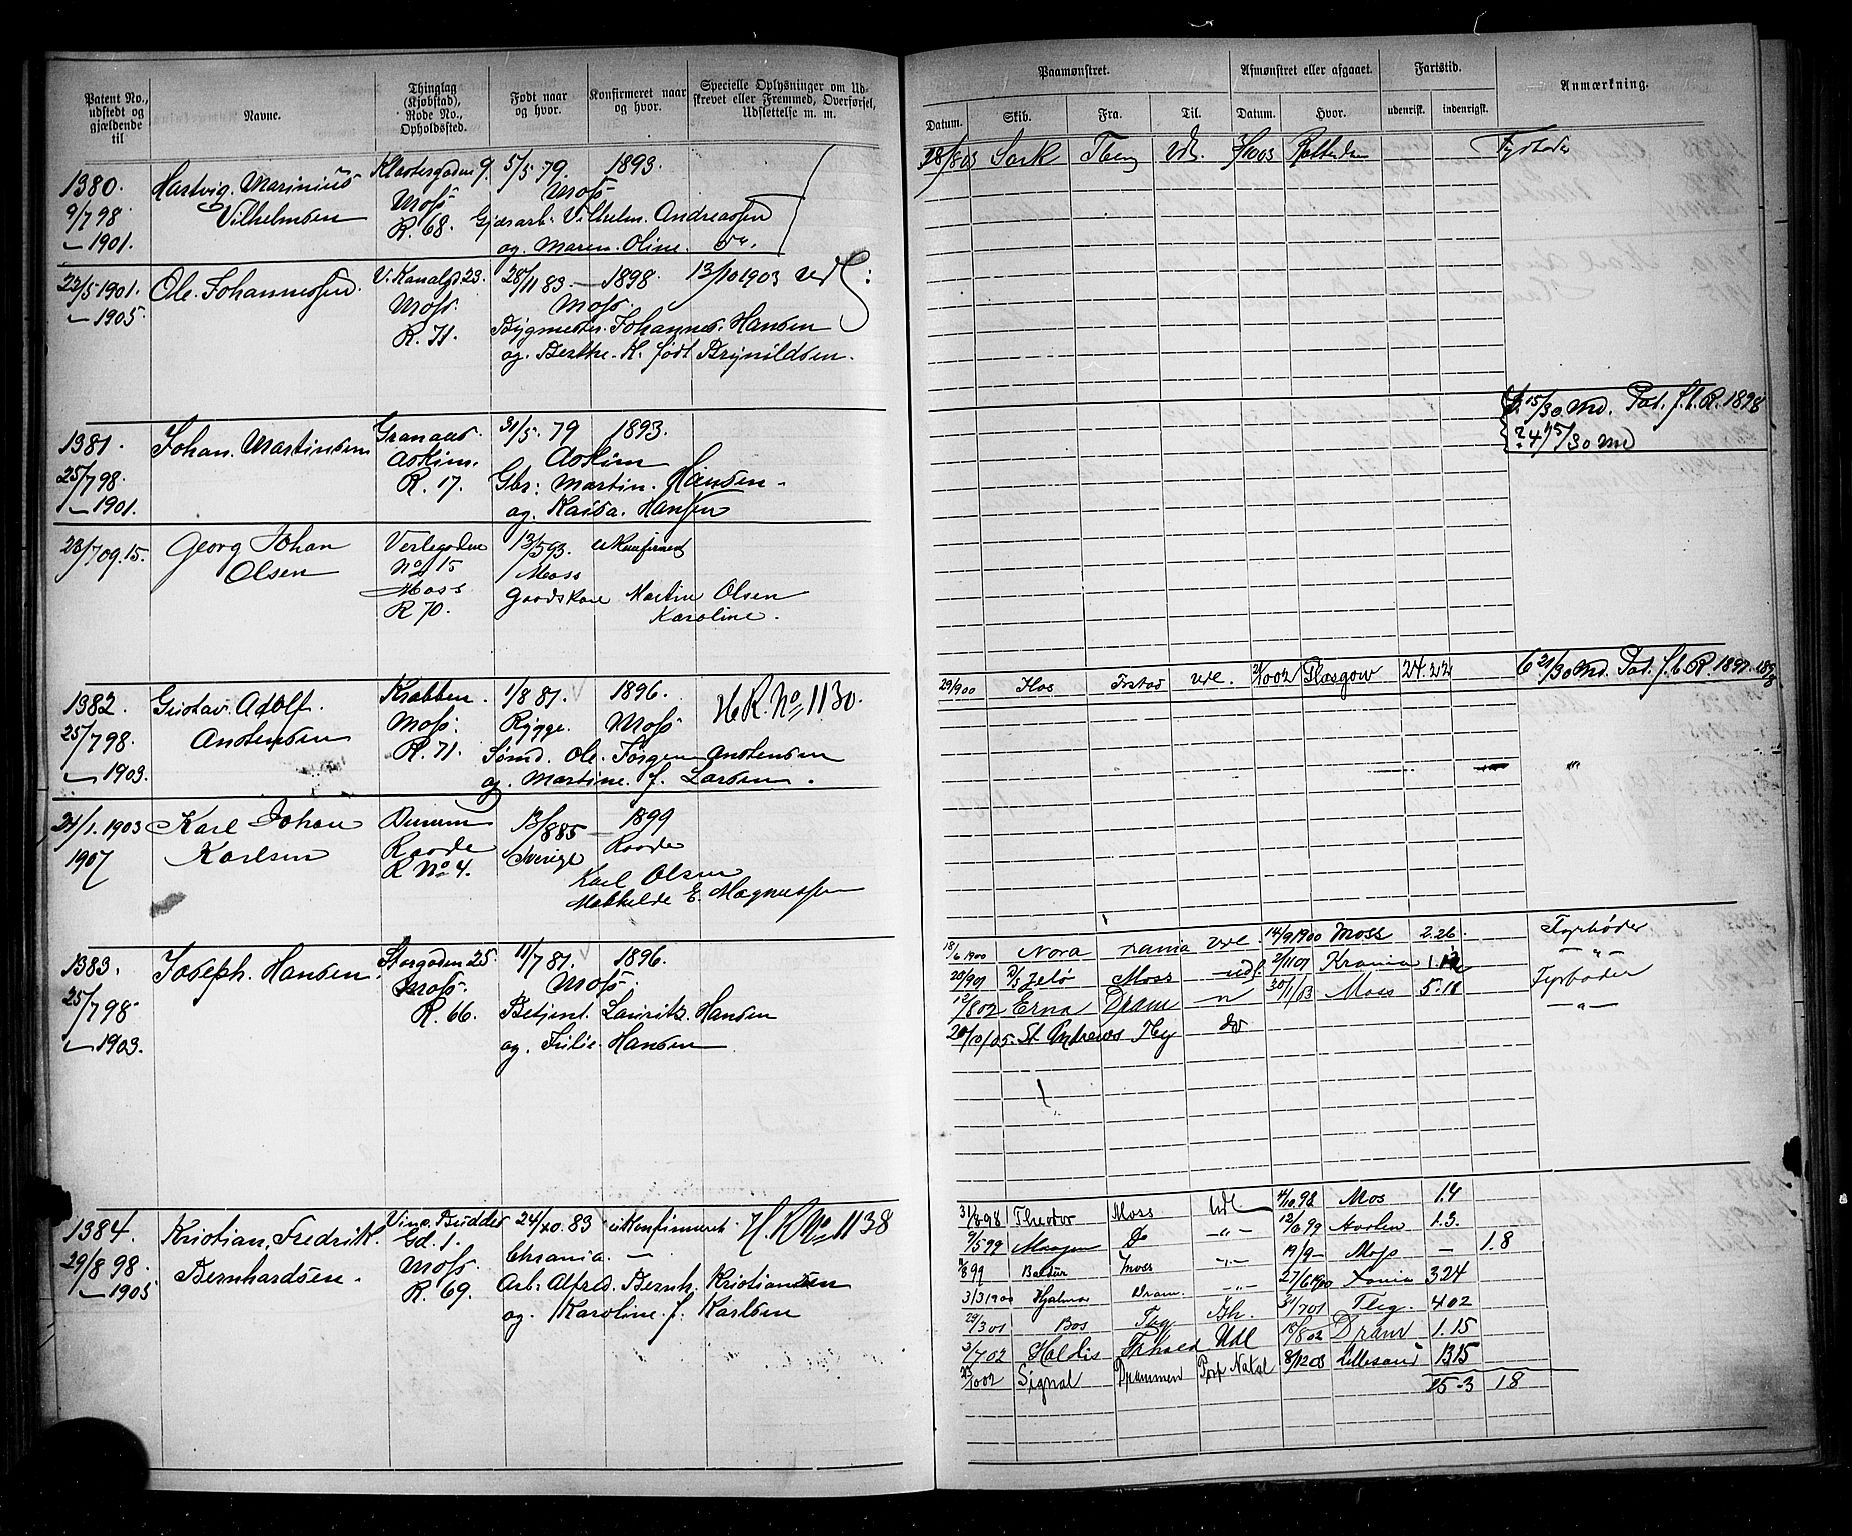 Patent No., udstedt og gjældende til
Navne.
Thinglag (Kjøbstad), Rode No., Opholdssted.
Født naar og hvor.
Konfirmeret naar og hvor.
Specielle Oplysninger om Udskrevet eller Fremmed, Overførsel, Udslettelse m. m.
Paamønstret.
Afmønstret eller afgaaet.
Fartstid.
Anmærkning.
Datum. Skib. Fra. Til. Datum. Hvor. udenrigsk. indenrigsk.
1380. Hartvig. Marinius Klostergaden 9. 5/5 79. 1893.
9/7 98 Vilhelmsen Moss Moss
1901. R. 68. Vilhelm. Andreassen
og. Maren. Oline.
22/5 1901. Ole. Johannessen. V. Kanalgd 23. 28/11 83. 1898. 13/10 1903 udl:
1905. Moss. Moss.
R. 71. Bygmester. Johannes. Hansen
og. Berthe. K. født Brynildsen.
1381. Johan. Martinsen 31/5. 79 1893.
25/7 98. Askim. Askim
1901. R. 17. Gbr: Martin. Hansen
og. Kaisa. Hansen
23/7 09. 15. Georg Johan Verlegaden 13/5 93. ukonfirmert
Olsen No 15 Moss
Moss Gaardskarl Martin Olsen
R 70. Karoline.
1382. Gustav. Adolf. Krabben. 1/8 81. 1896. H R. No 1130.
25/7 98. Anstensen Moss. Rygge. Moss
1903. R. 71. Sømd. Ole. Jørgen Anstensen
og. Martine. f. Larsen.
24/1. 1903 Karl Johan 13/8 85 1899
1907 Karlsen Raade Sverige Raade
R No 4. Karl Olsen
Mathilde E. Magnussen
1383. Joseph. Hansen. Storgaden 25. 11/7 81. 1896.
25/7 98 Moss. Moss.
1903. R. 66. Betjent. Laurits. Hansen
og. Julie. Hansen
1384. Kristian. Fredrik. Vinc. Buddes 24/10. 83 ukonfirmeret. H. R No 1138
29/8 98. Bernhardsen. Gd. 1. Chrania.
1905 Moss Arb: Alfred. Bernh. Kristiansen
R. 69. og. Karoline. f. Karlsen
28/8 03 Sark Tbeng Udl. Fyrbøder
15/30 Md. Pat. f. l. R. 1898
15/30 Md
29/9 00 Udl. Glasgow 24. 22 6 21/30 Md. Pat. f. l. R. 1897. 1898
18/6 1900 Nora rania Udl 14/9 1900 Moss 2.26. Fyrbøder
20/9 01 D/S Jelø Moss udl. 2/11 01 Krania - " -
12/8 02 Erna Dram - " 30/1 03 Moss 5.18 Fyrbøder
20/10/05. St. Andrews Tbg do - " -
31/8 98 Theodor Moss Udl 4/10 98 Mos 1.4
9/5 99 Do - " - 12/6 99 1.3.
8 99 Baldur Moss - " - 19/9 - Moss - 1.8
3/3 1900 Hjalmar Dram. - " - 27/6 1900 Xania 324
29/3 01 Bos Tbg 31/7 01 Tbg. 402
3/7 02 Haldis Udl 18/8 02 Dram 1.15
23/10 02 Signal Drammen Port Natal 8/12 03 Lillesand 1315
25-3 18